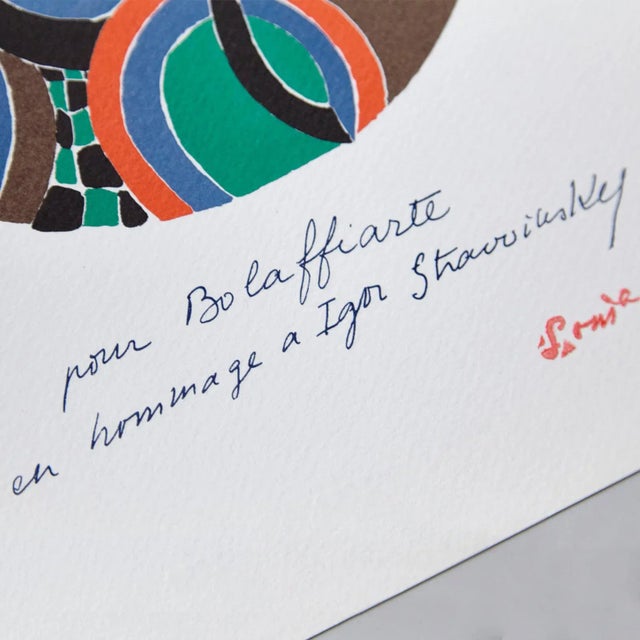 pour Bolaffiarte
en hommage a Igor Stravinsky
Sonia